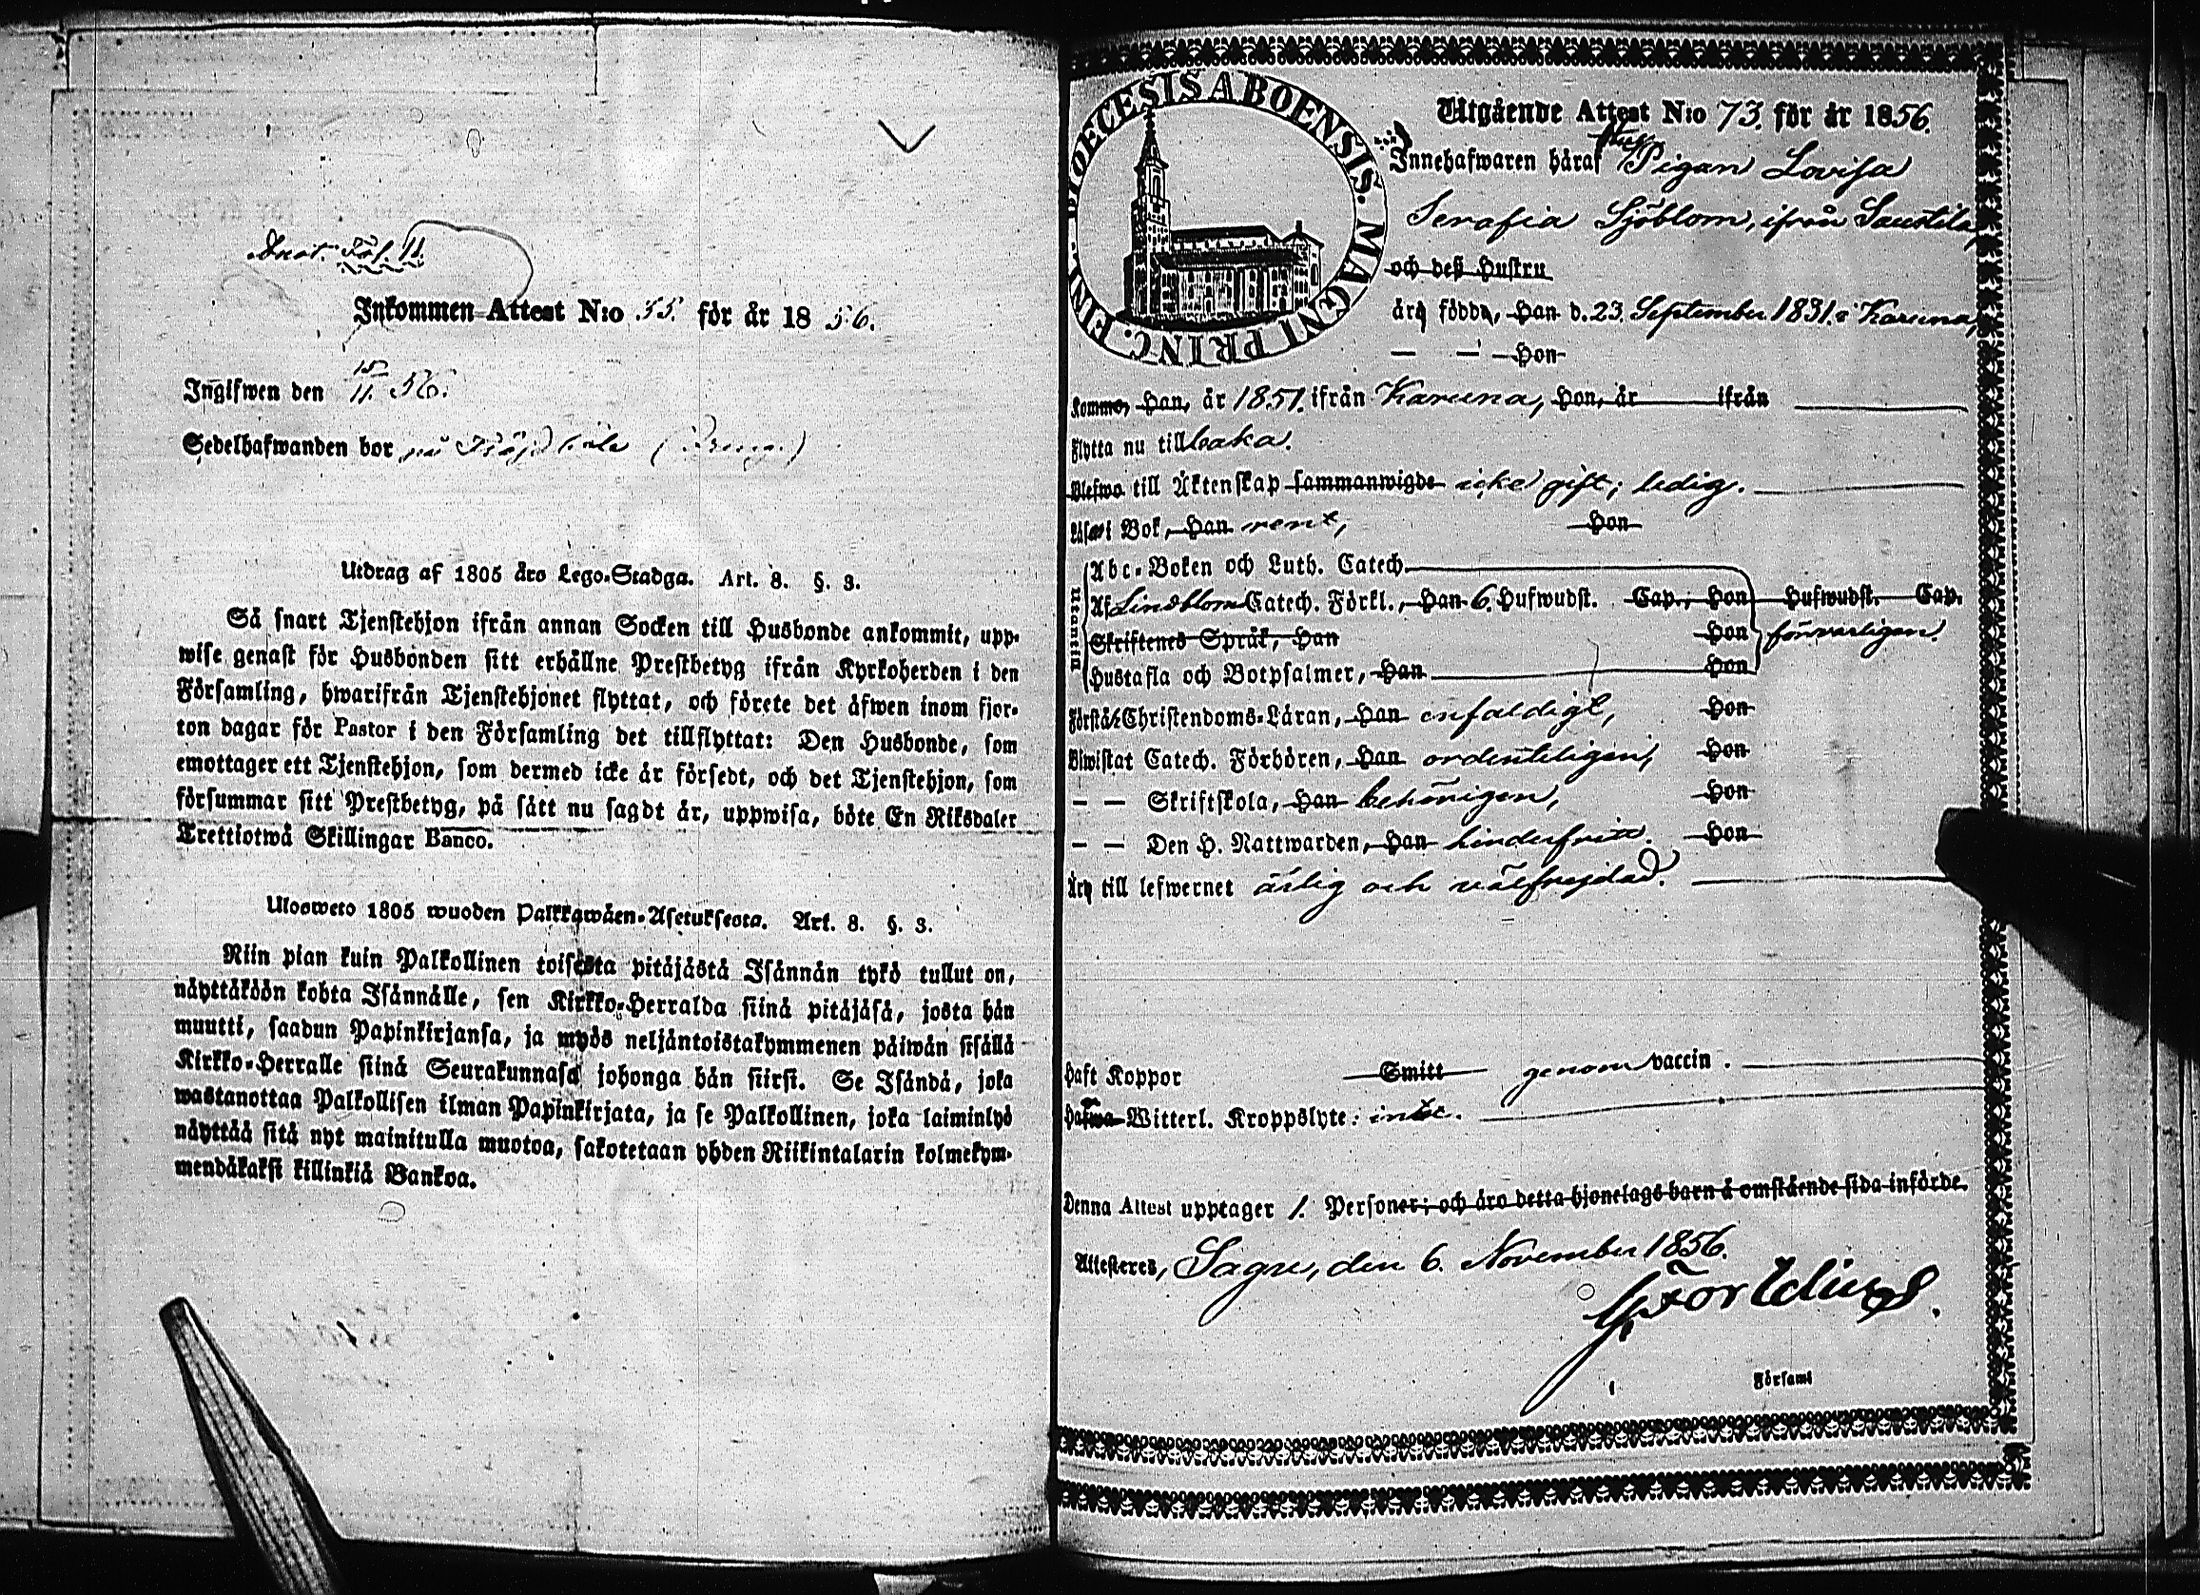 Inkommen Attest N:o 55. för år 1856.
Ingifwen den 15/11. 56.
Sedelhafwanden bor på
Utdrag af 1805 års Lego-Stadga. Art. 8. §. 3.
Så snart Tjenstehjon ifrån annan Socken till Husbonde ankommit, upp-
wise genast för Husbonden sitt erhållne Prestbetyg ifrån Kyrkoherden i den
Församling, hwarifrån Tjenstehjonet flyttat, och förete det äfwen inom fjor-
ton dagar för Pastor i den Församling det tillflyttat: Den Husbonde, som
emottager ett Tjenstehjon, som dermed icke är försedt, och det Tjenstehjon, som
försummar sitt Prestbetyg, på sätt nu sagdt är, uppwisa, böte En Riksdaler
Trettiotwå Skillingar Banco.
Ulosweto 1805 wuoden Palkkawäen-Asetuksesta. Art. 8. §. 3.
Niin pian kuin Palkollinen toisesta pitäjästä Isännän tykö tullut on,
näyttäköön kohta Isännälle, sen Kirkko-Herralda siinä pitäjäsä, josta hän
muutti, saadun Papinkirjansa, ja myös neljäntoistakymmenen päiwän sisällä
Kirkko-Herralle siinä Seurakunnasa johonga hän siirsi. Se Isändä, joka
wastanottaa Palkollisen ilman Papinkirjata, ja se Palkollinen, joka laiminlyö
näyttää sitä nyt mainitulla muotoa, sakotetaan yhden Riikintalarin kolmekym-
mendäkaksi killinkiä Bankoa.
DIOECESIS ABOENSIS. MAGNI PRINC. FINL.
Utgående Attest N:o 73. för år 1856.
Innehafwaren häraf Pigan Lovisa
Serafia Sjöblom, ifrån Saustila,
och deß Hustru
äro födda, Han d. 23. September 1831. i Karuna,
— — Hon
Komme, Han, år 1851. ifrån Karuna, Hon, år ifrån
Flytta nu tillbaka.
Blefwo till Äktenskap sammanwigde icke gift; ledig.
Läsa i Bok, Han rent, Hon
Utantill
Abc-Boken och Luth. Catech.
Af Lindblom Catech. Förkl., Han 6. Hufwudst. Cap., Hon Hufwudst. Cap.
Skriftenes Språk, Han Hon försvarligen.
Hustafla och Botpsalmer, Han Hon
Förstå Christendoms-Läran, Han enfaldigt, Hon
Biwistat Catech. Förhören, Han ordenteligen, Hon
— — Skriftskola, Han behörigen, Hon
— — Den H. Nattwarden, Han hinderfritt. Hon
Äro till lefwernet ärlig och välfrejdad.
Haft Koppor Smitt genom vaccin.
Hafwa Witterl. Kroppslyte: inte.
Denna Attest upptager 1. Personer; och äro detta hjonelags barn å omstående sida införde.
Attesteres, Sagu, den 6. November 1856.
Församl